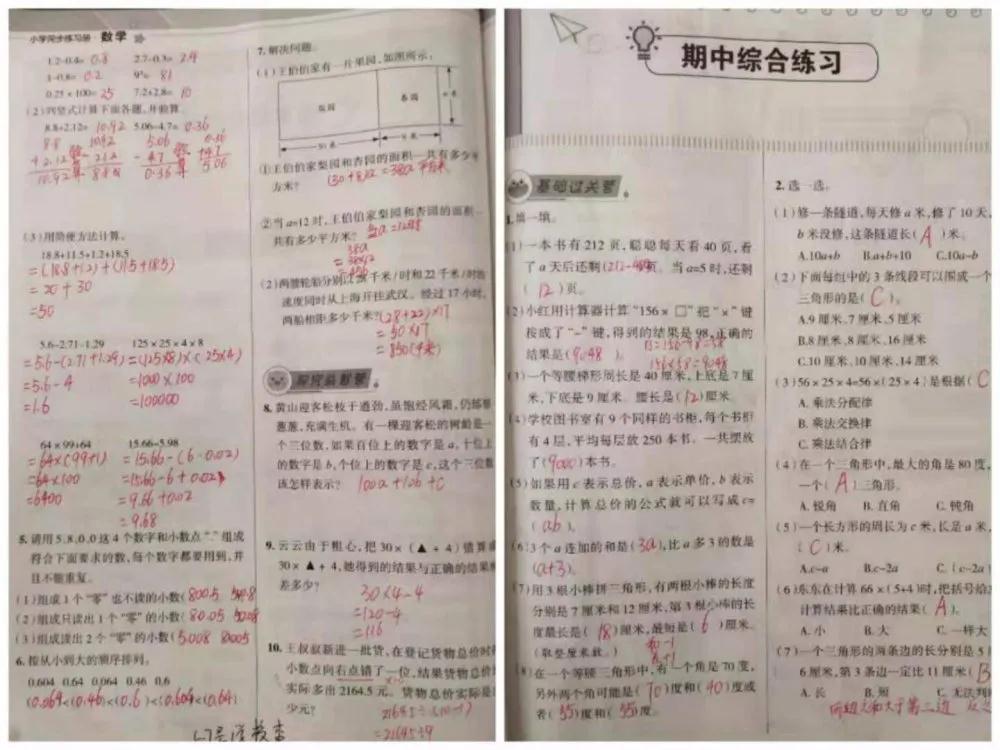 小学同步练习册·数学
1.2-0.4= 0.8 2.7-0.3= 2.4
1-0.8= 0.2 9²= 81
0.25×100= 25 7.2+2.8= 10
(2)列竖式计算下面各题,并验算。
8.8+2.12= 10.92 5.06-4.7= 0.36
8.8 10.92 5.06 0.36
+2.12 -2.12 -4.7 +4.7
10.92 0.36 5.06
(3)用简便方法计算。
18.8+11.5+1.2+18.5
=(18.8+1.2)+(11.5+18.5)
=20+30
=50
5.6-2.71-1.29 125×25×4×8
=5.6-(2.71+1.29) =(125×8)×(25×4)
=5.6-4 =1000×100
=1.6 =100000
64×99+64 15.66-5.98
=64×(99+1) =15.66-(6-0.02)
=64×100 =15.66-6+0.02
=6400 =9.66+0.02
=9.68
5.请用5、8、0、0这4个数字和小数点“.”组成
符合下面要求的数,每个数字都要用到,并
且不能重复。
(1)组成1个“零”也不读的小数(
(2)组成只读出1个“零”的小数(80.05
(3)组成读出2个“零”的小数(5.008 8.005
6.按从小到大的顺序排列。
0.604 0.64 0.064 0.46 0.6
(0.064)<(0.46)<(0.6)<(0.604)<(0.64)
7.解决问题。
(1)王伯伯家有一片果园,如图所示:
梨园 杏园
30米 8米
①王伯伯家梨园和杏园的面积一共有多少平
方米? (30+8)a=38a平方米
②当a=12时,王伯伯家梨园和杏园的面积一
共有多少平方米?
38a
=38×12
=456
(2)两艘轮船分别以28千米/时和22千米/时的
速度同时从上海开往武汉。经过17小时,
两船相距多少千米? (28+22)×17
=50×17
=850(千米)
探究函数营
8.黄山迎客松枝干遒劲,虽饱经风霜,仍郁郁
葱葱,充满生机。有一棵迎客松的树龄是一
个三位数,如果百位上的数字是a,十位上
的数字是b,个位上的数字是c,这个三位数
该怎样表示? 100a+10b+c
9.云云由于粗心,把30×(▲+4)错算成
30×▲+4,她得到的结果与正确的结果相
差多少?
30×4-4
=120-4
=116
10.王叔叔新进一批货,在登记货物总价时
小数点向右点错了一位,结果货物总价
实际多出2164.5元。货物总价实际是
少元?
2164.5÷(10-1)
=2164.5÷9
期中综合练习
基础过关营
1.填一填。
(1)一本书有212页,聪聪每天看40页,看
了a天后还剩( )页。当a=5时,还剩
(12)页。
(2)小红用计算器计算“156×□”把“×”键
按成了“-”键,得到的结果是98,正确的
结果是(9048)。
156×58=9048
(3)一个等腰梯形周长是40厘米,上底是7厘
米,下底是9厘米。腰长是(12)厘米。
(4)学校图书室有9个同样的书柜,每个书柜
有4层,平均每层放250本书。一共摆放
了(9000)本书。
(5)如果用c表示总价,a表示单价,b表示
数量,计算总价的公式就可以写成c=
(ab)。
(6)3个a连加的和是(3a),比a多3的数是
(a+3)。
(7)用3根小棒拼三角形,有两根小棒的长度
分别是7厘米和12厘米,第3根小棒的长
度最长是(18)厘米,最短是(6)厘米。
(取整厘米数。) 和-1
差+1
(8)在一个等腰三角形中,有一个角是70度,
另外两个角可能是(70)度和(40)度或
者(55)度和(55)度。
2.选一选。
(1)修一条隧道,每天修a米,修了10天,
b米没修,这条隧道长(A)米。
A.10a+b B.a+b+10 C.10a-b
(2)下面每组中的3条线段可以围成一个
三角形的是(C)。
A.9厘米、7厘米、5厘米
B.8厘米、8厘米、16厘米
C.10厘米、10厘米、14厘米
(3)56×25×4=56×(25×4)是根据(C
A.乘法分配律
B.乘法交换律
C.乘法结合律
(4)在一个三角形中,最大的角是80度,
一个(A)三角形。
A.锐角 B.直角 C.钝角
(5)一个长方形的周长为c米,长是a米,
(C)米。
A.c-a B.c-2a C.(c-2a)
(6)东东在计算66×(5+4)时,把括号给
计算结果比正确的结果(A)。
A.小 B.大 C.一样大
(7)一个三角形的两条边的长分别是5
6厘米,第3条边一定比11厘米(B
A.长 B.短 C.无法判
两边之和大于第三边